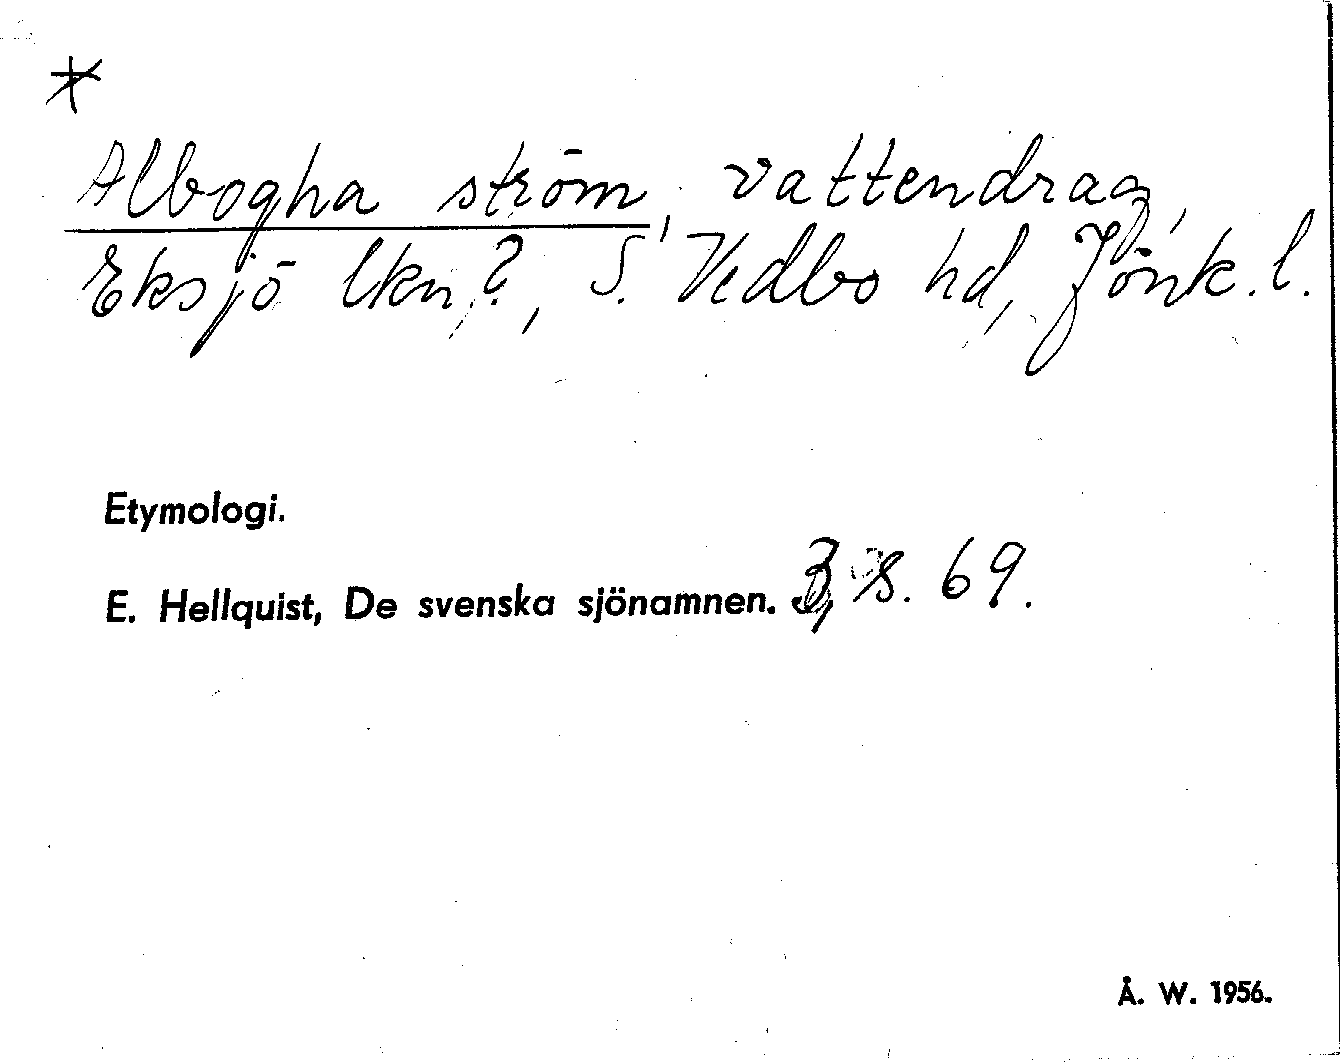 *
Albogha ström, vattendrag,
Eksjö lkn?, S. Vedbo hd, Jönk. l.
Etymologi.
E. Hellquist, De svenska sjönamnen. 3, s. 69.
Å. W. 1956.